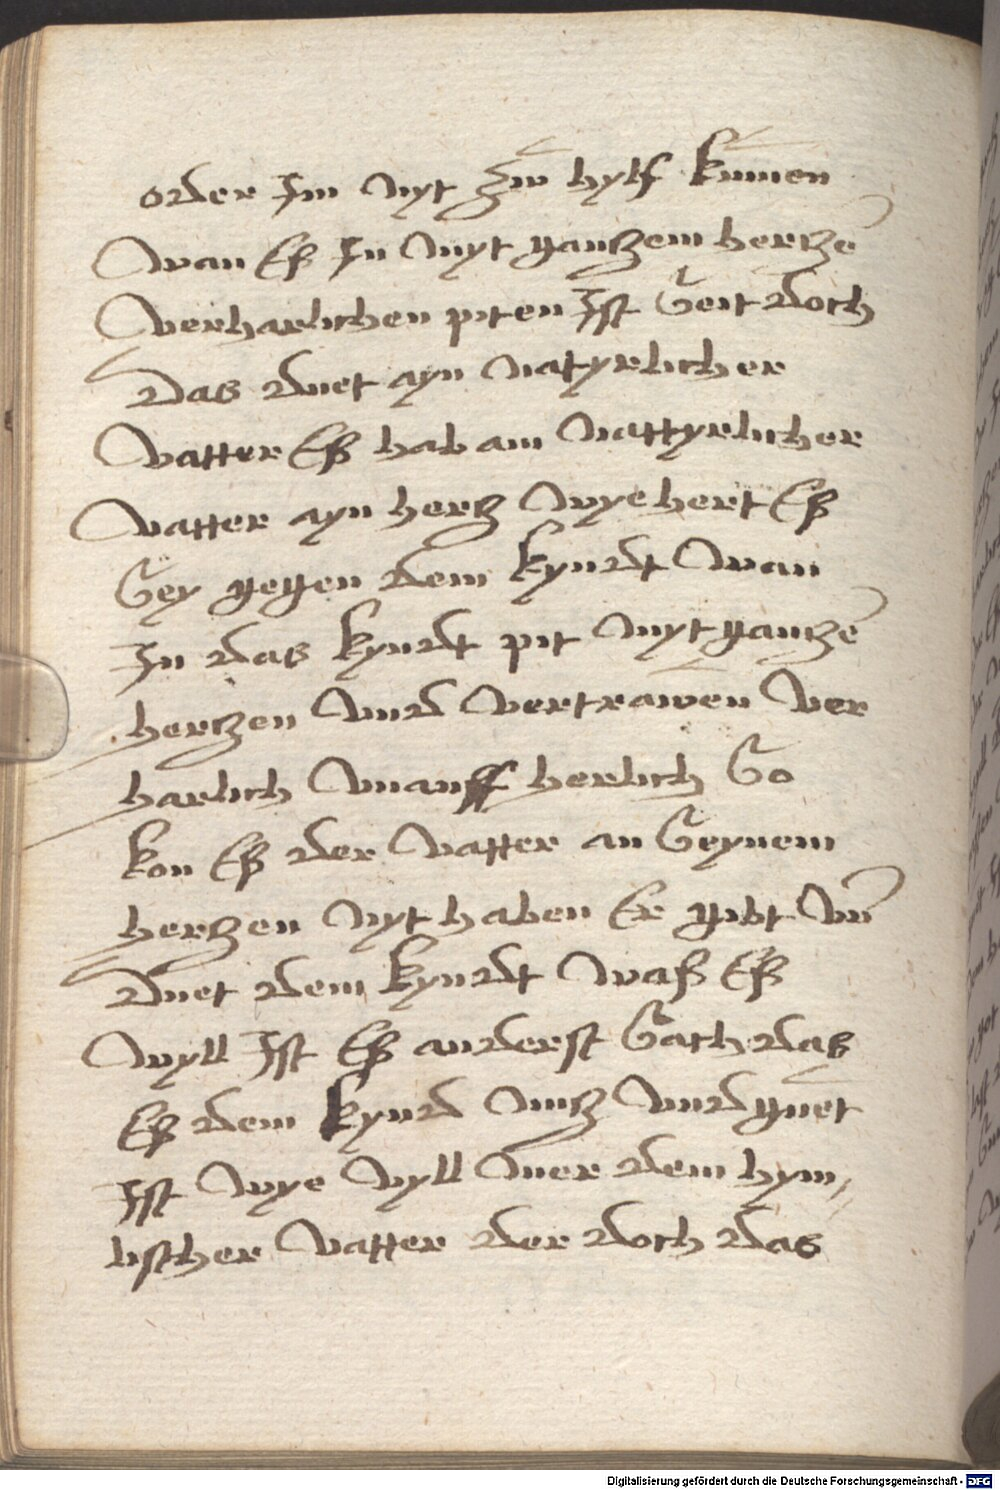 order Im Nyt zw hylf kumen
Wan Eß In Myt gantzem hertzē
Verharlichen piten Ist Seit doch
das duet ayn Natyrlicher
Vatter Eß hab ain Nattyrlicher
Vatter ayn hertz Wye hert Eß
Sey gegen dem kyndt Wan
In das kyndt pit Myt gantzē
hertzen Vnd Vertrawen Ver
harlich Vnauff herlich So
kon Eß der Vatter an Seynem
hertzen Nyt haben Er gibt Vn̄
duet dem kyndt Waß Eß
Wyll Ist Eß anderst Sach das
Eß dem kynd Nutz Vnd guet
Ist Wye Vyll Mer dem hym,,
lischer Vatter der doch das
Digitalisierung gefördert durch die Deutsche Forschungsgemeinschaft - DFG